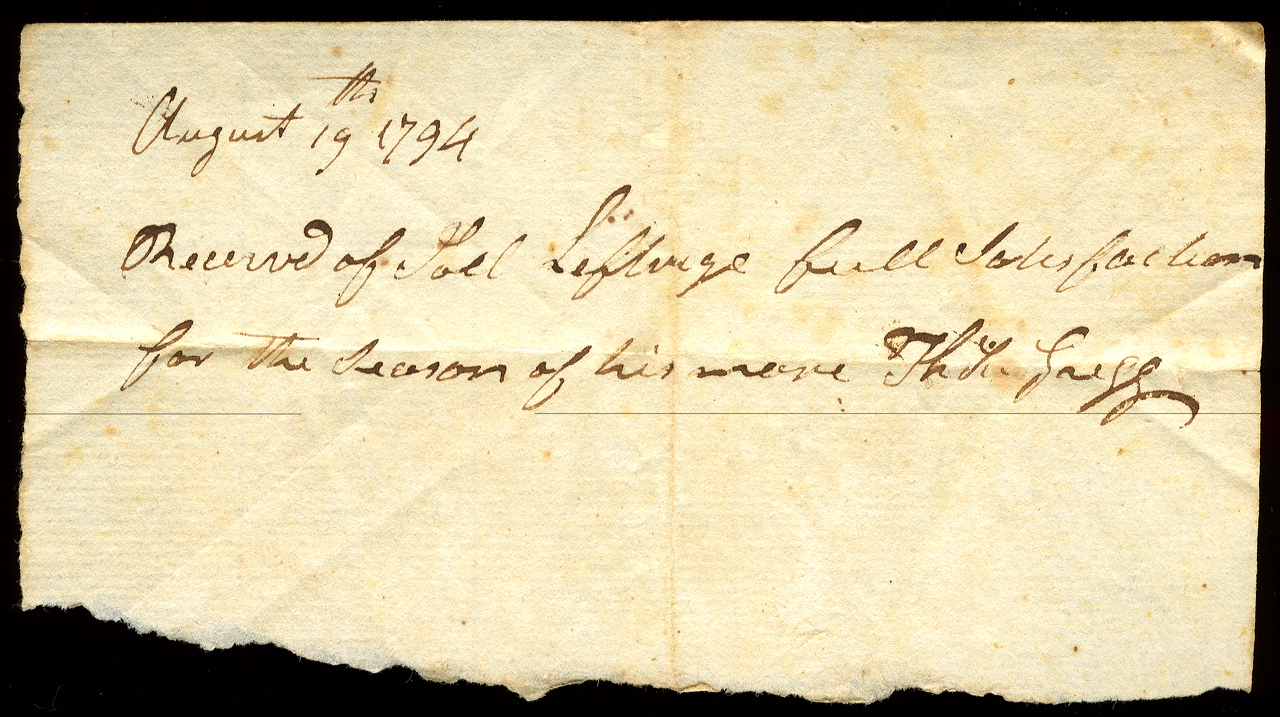 August 19th 1794
Received of Joel Leftwige full Satisfaction
for the Season of his mare Gregg